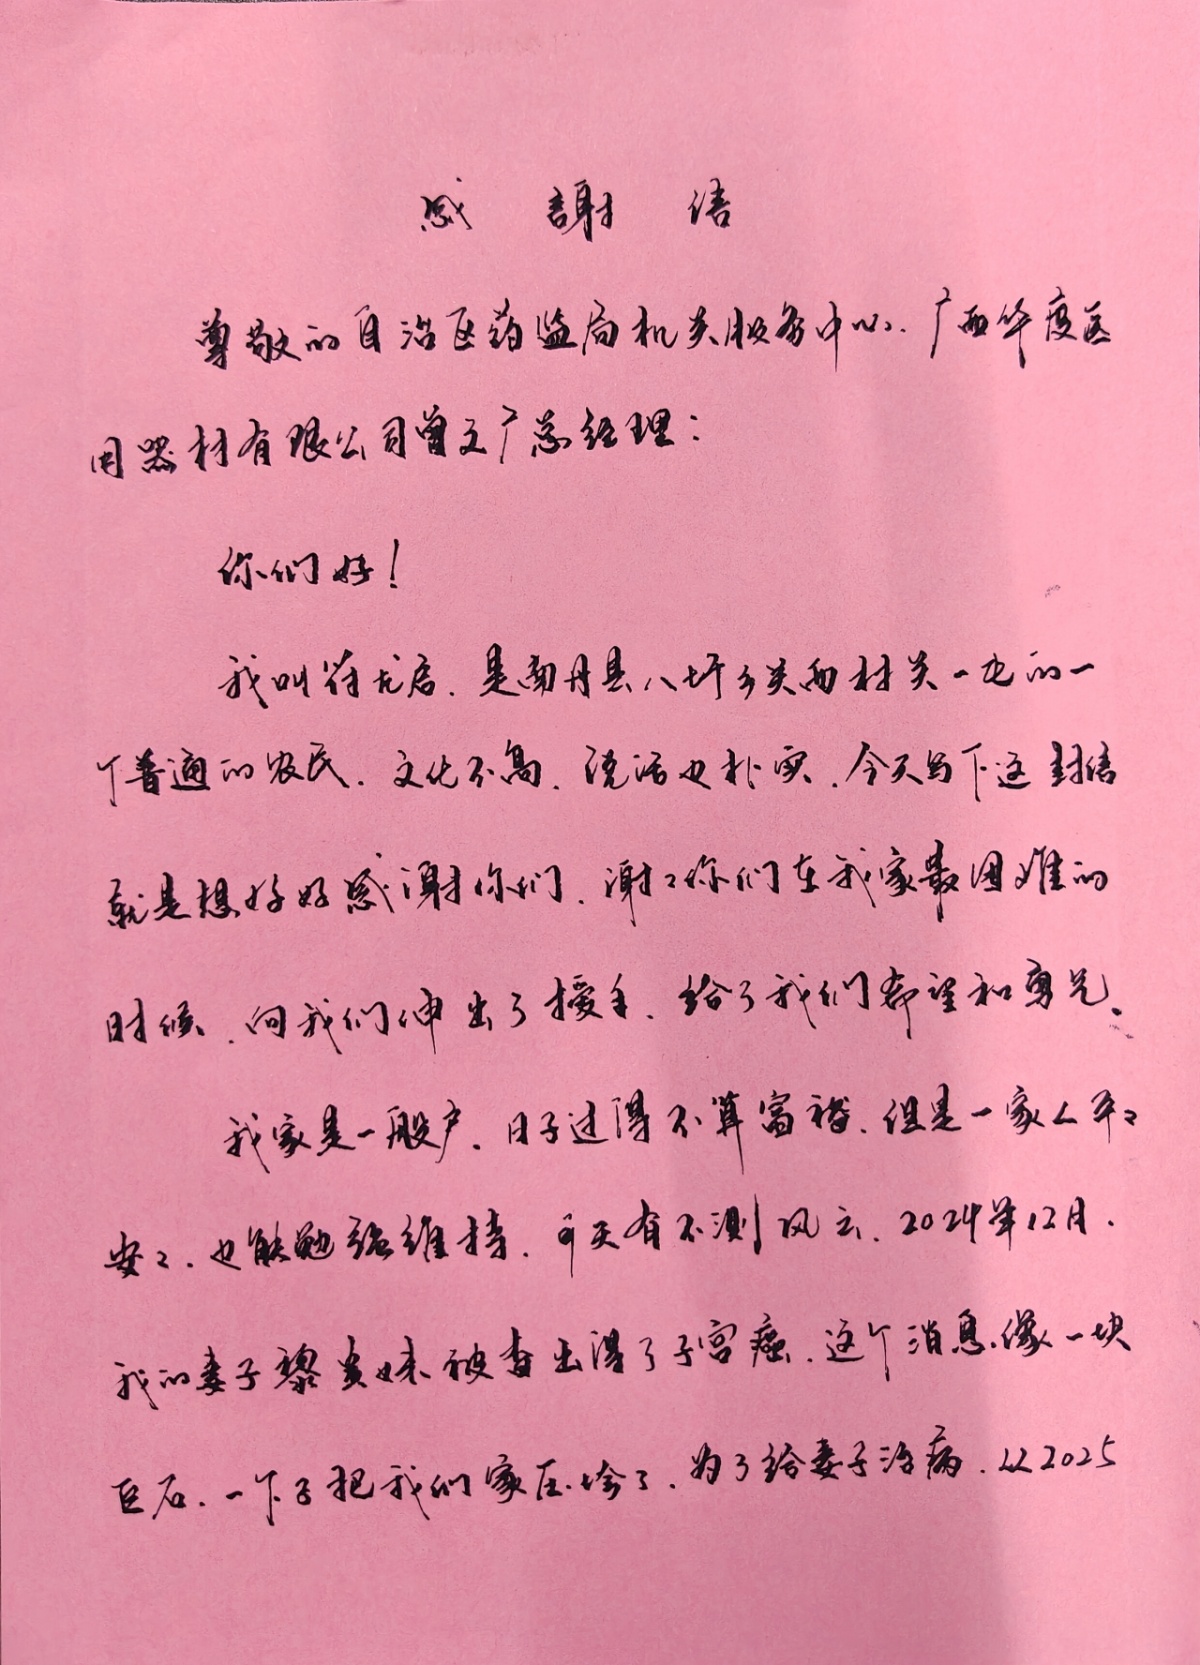 感謝信
尊敬的自治区药监局机关服务中心、广西华度医
用器材有限公司曾文广总经理：
你们好！
我叫符尤启、是南丹县八圩乡关西村关一屯的一
个普通的农民、文化不高、说话也朴实、今天写下这封信
就是想好好感谢你们、谢谢你们在我家最困难的
时候、向我们伸出了援手、给了我们希望和勇气。
我家是一般户、日子过得不算富裕、但是一家人平平
安安、也能勉强维持、可天有不测风云、2024年12月、
我的妻子黎美妹被查出得了子宫癌、这个消息像一块
巨石、一下子把我们家压垮了、为了给妻子治病、从2025